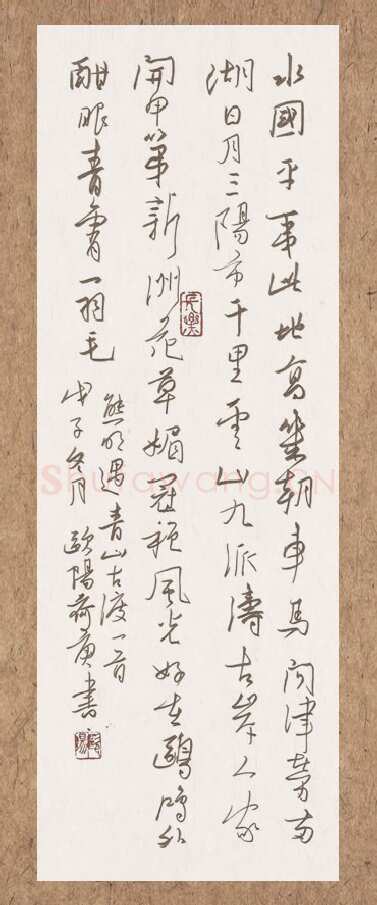 水國平章此地高幾朝車馬問津勞兩
湖日月三陽市千里雲山九派濤古岸人家
開甲第新洲花草媚冠袍風光好在鷗鴻外
酣眼青霄一羽毛
熊明遇青山古渡一首
戊子冬月歐陽荷庚書